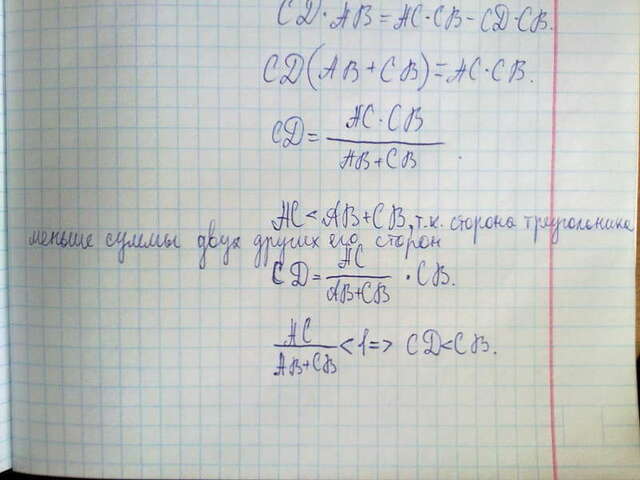 CD·AB=AC·CB-CD·CB.
CD(AB+CB)=AC·CB.
CD= AC·CB / AB+CB .
AC<AB+CB, т.к. сторона треугольника
меньше суммы двух других его сторон
CD= AC / AB+CB ·CB.
AC / AB+CB <1=> CD<CB.